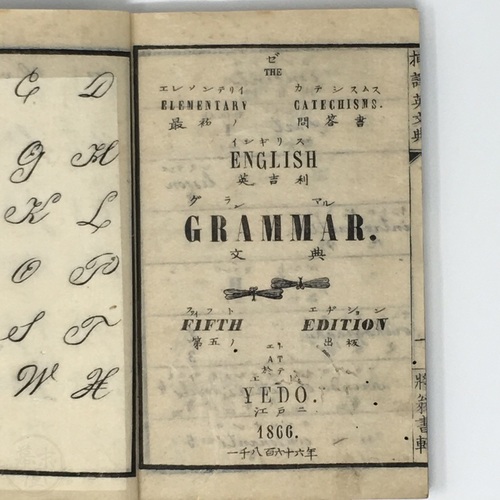 C D
G H
K L
O P
S T
W X
ゼ
THE
エレメンテリイ カテシスムス
ELEMENTARY CATECHISMS.
最 ノ 問答書
イングリス
ENGLISH
英吉利
グランマル
GRAMMAR.
文典
FIFTH EDITION
第五ノ 出板
エト
AT
於テ
YEDO.
江戸ニ
1866.
一千八百六十六年
英文典
一